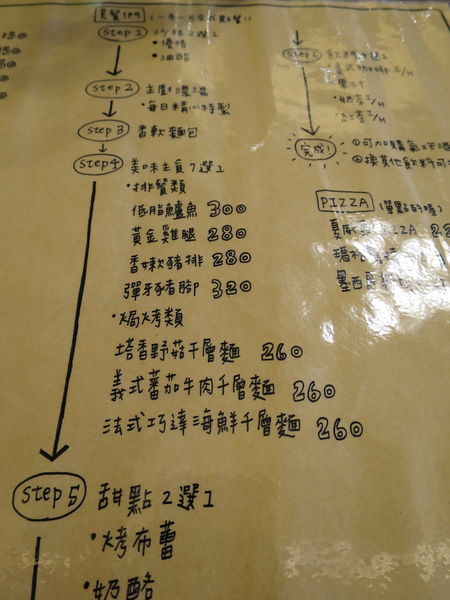 step 1 沙拉2選1
•優格
•油醋
step 2 主廚濃湯
•每日精心特製
step 3 香軟麵包
step4 美味主食7選1
•排餐類
低脂鱸魚 300
黃金雞腿 280
香辣豬排 280
彈牙豬腳 320
•焗烤類
塔香野菇千層麵 260
義式蕃茄牛肉千層麵 260
法式巧達海鮮千層麵 260
step 5 甜點2選1
•烤布蕾
•奶酪
•美式咖啡 I/H
•奶茶 I/H
•紅茶 I/H
完成!
①可加購
②換其他飲料可
PIZZA (單點的喔)